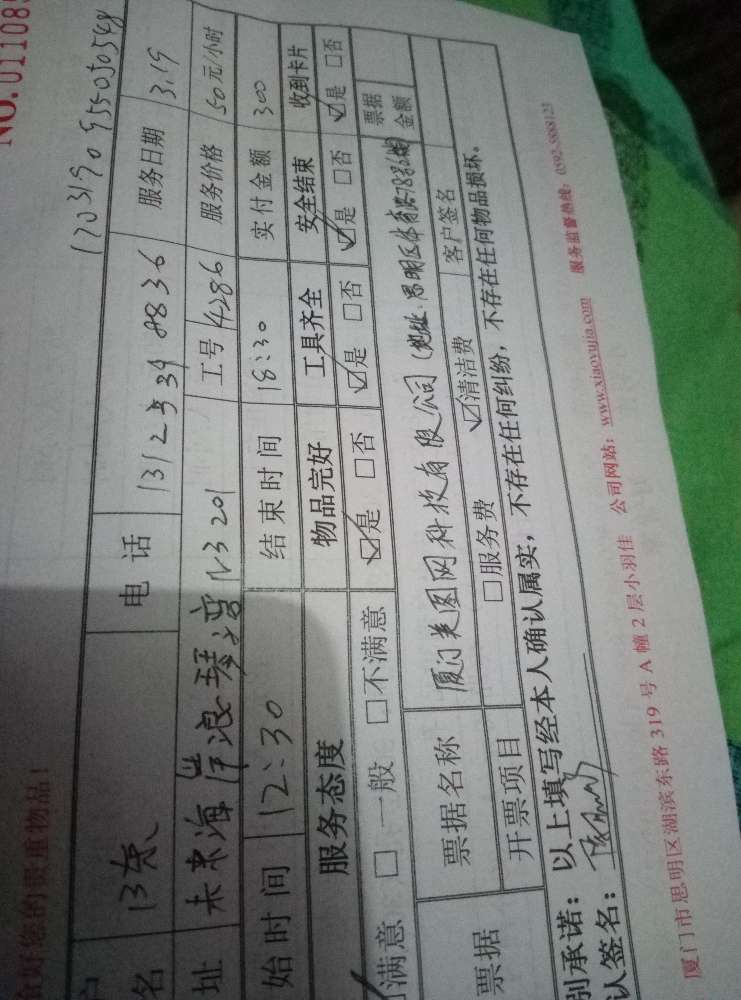 NO.011085
合好您的贵重物品!
1703190955050548
户名 电话 131 2539 8836 服务日期 3.19
址 未来海岸浪琴湾 N3 201 工号 4286 服务价格 50元/小时
始时间 12:30 结束时间 18:30 实付金额 300
服务态度 物品完好 工具齐全 安全结束 收到卡片
☑满意 □一般 □不满意 ☑是 □否 ☑是 □否 ☑是 □否 ☑是 □否
票据 票据名称 厦门美图网科技有限公司(地址:思明区体育路 票据金额
开票项目 □服务费 ☑清洁费 客户签名
别承诺:以上填写经本人确认属实,不存在任何纠纷,不存在任何物品损坏。
认签名:
厦门市思明区湖滨东路 319 号 A 幢 2 层小羽佳 公司网站:www.xiaoyujia.com 服务监督热线:0592-5888123